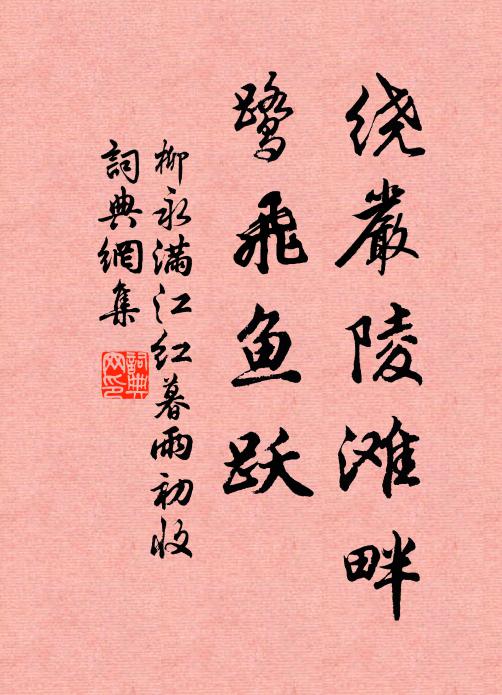 绕嚴陵滩畔
鹭飛鱼跃
柳永满江红暮雨初收
詞典網集
詞典网印